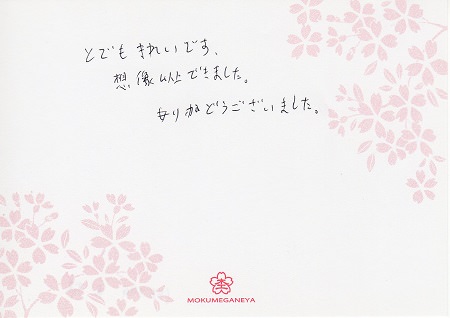 とてもきれいです、
想像以上できました。
ありがとうございました。
MOKUMEGANEYA